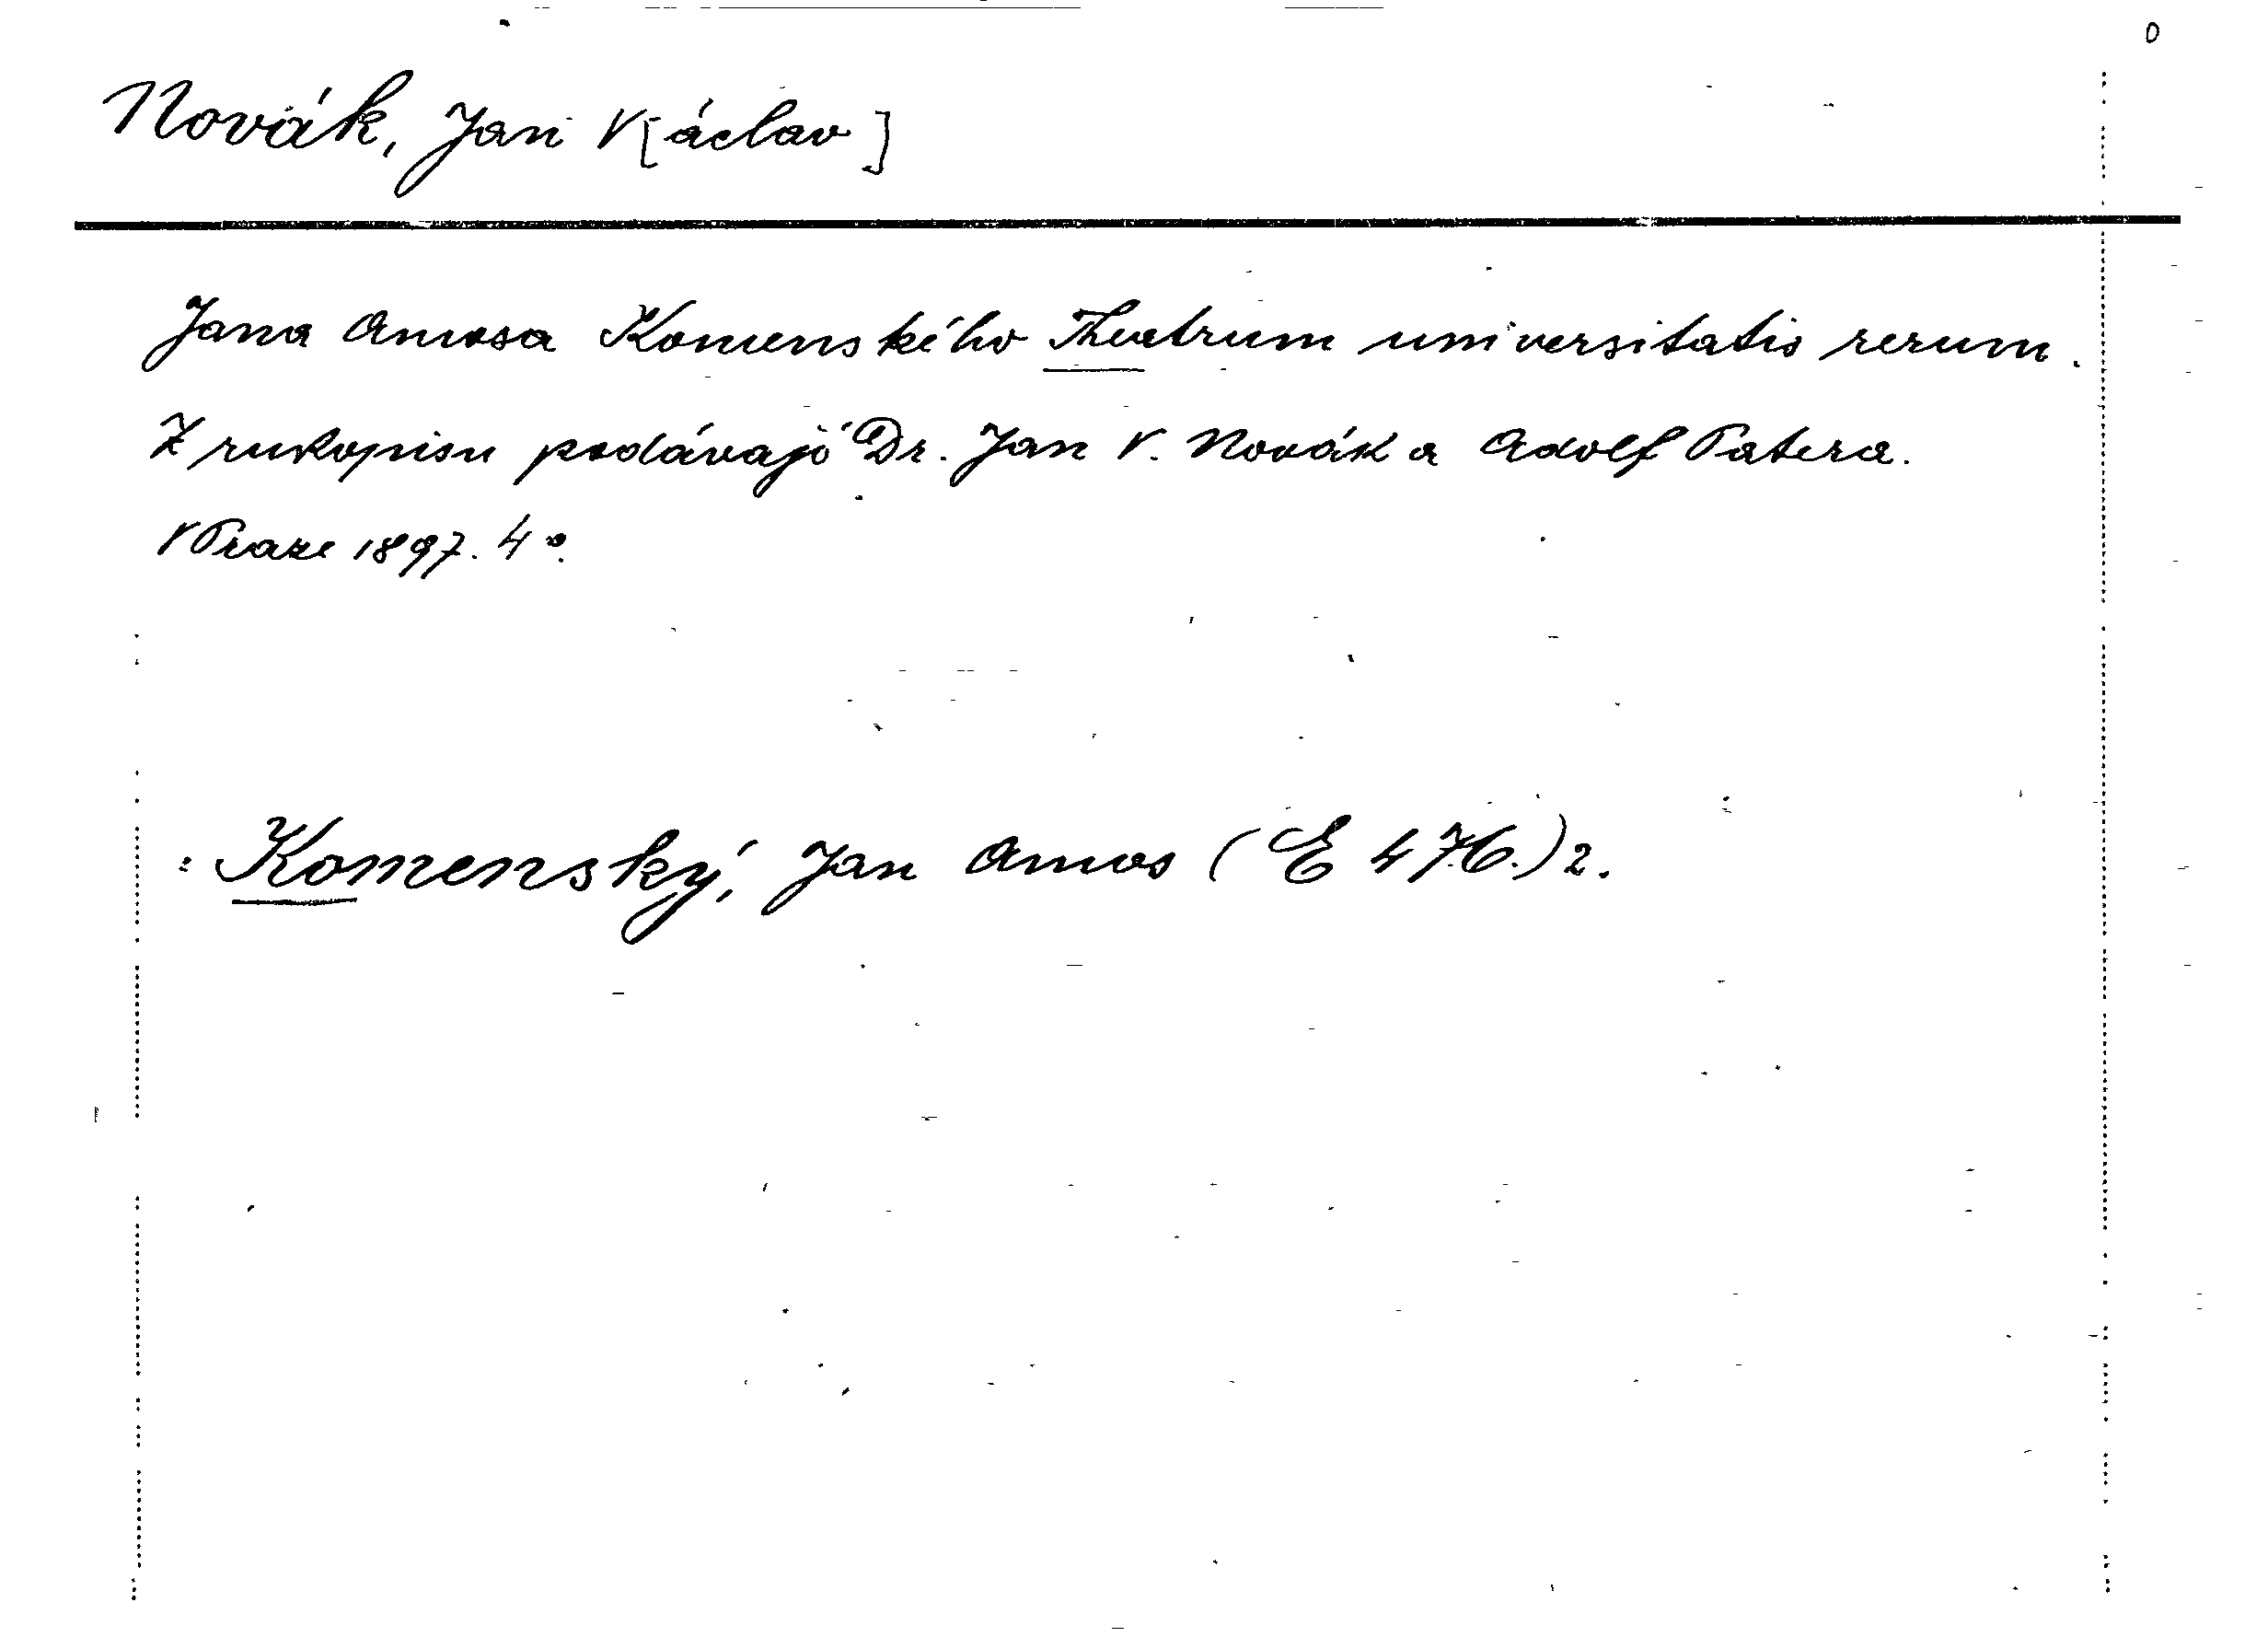 Novák, Jan V[áclav]
Jana Amosa Komenského Theatrum universitatis rerum.
Z rukopisu podávají Dr. Jan V. Novák a Adolf Patera.
V Praze 1897. 4°.
: Komenský, Jan Amos (E 476.) 2.